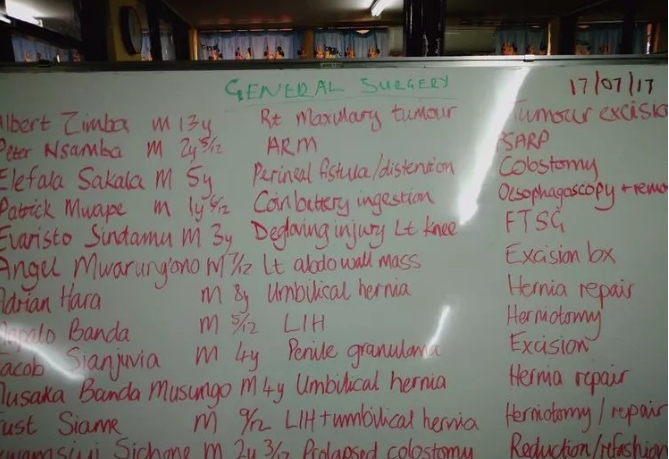 GENERAL SURGERY 17/07/17
Albert Zimba M 13y Rt Maxulary tumour Tumour excision
Peter Nsamba M 2y 5/12 ARM SARP
Elefala Sakala M 5y Perineal fistula/distention Colostomy
Patrick Mwape M 1y 6/12 Coin battery ingestion Oesophagoscopy + remo
Evaristo Sindamu M 3y Degloving injury Lt knee FTSG
Angel Mwarung'ono M 7/12 Lt abdo wall mass Excision bx
Adrian Hara M 8y Umbilical hernia Hernia repair
Banda M 5/12 LIH Herniotomy
Jacob Sianjuvia M 4y Penile granuloma Excision
Musaka Banda Musungo M 4y Umbilical hernia Hernia repair
Just Siame M 9/12 LIH + umbilical hernia Herniotomy / repair
Sichone M 2y 3/12 Prolapsed colostomy Reduction/refashion